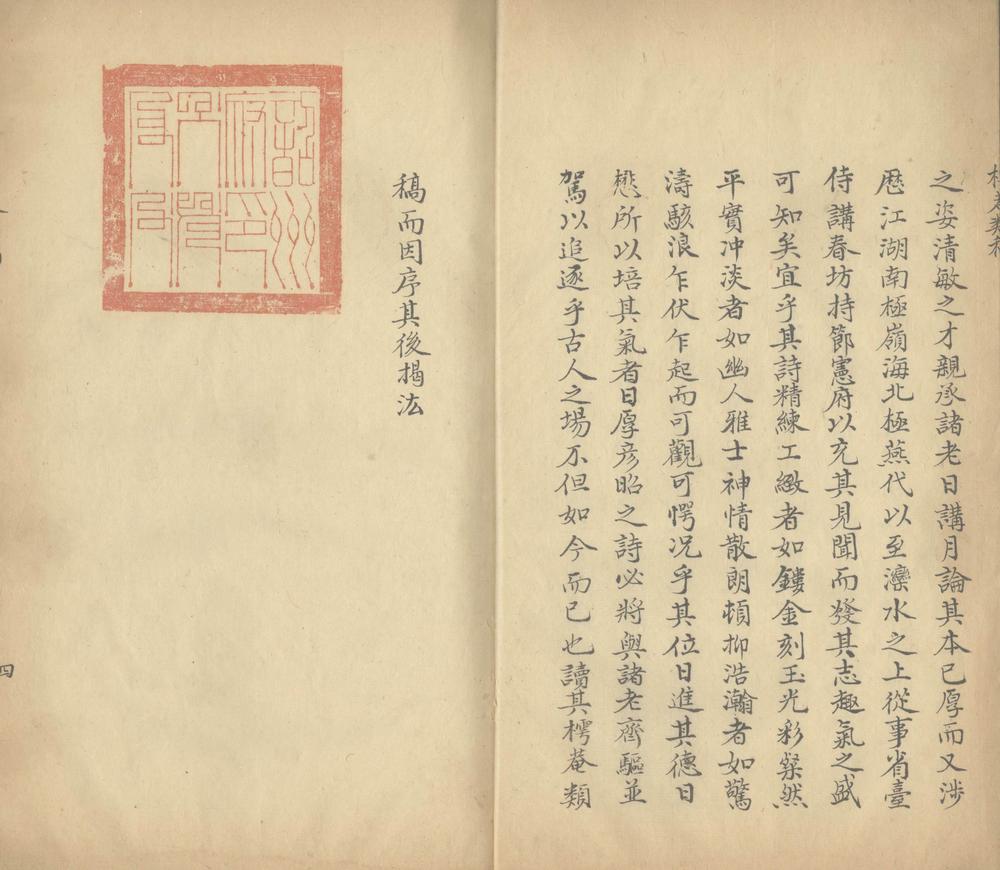 之姿清敏之才親承諸老日講月論其本已厚而又涉
歷江湖南極嶺海北極燕代以至灤水之上從事省臺
侍講春坊持節憲府以充其見聞而發其志趣氣之盛
可知矣宜乎其詩精練工緻者如鏤金刻玉光彩粲然
平實冲淡者如幽人雅士神情散朗頓抑浩瀚者如驚
濤駭浪乍伏乍起而可觀可愕况乎其位日進其德日
懋所以培其氣者日厚彦昭之詩必將與諸老齊驅並
駕以追逐乎古人之場不但如今而已也讀其樗菴類
稿而因序其後揭汯
四